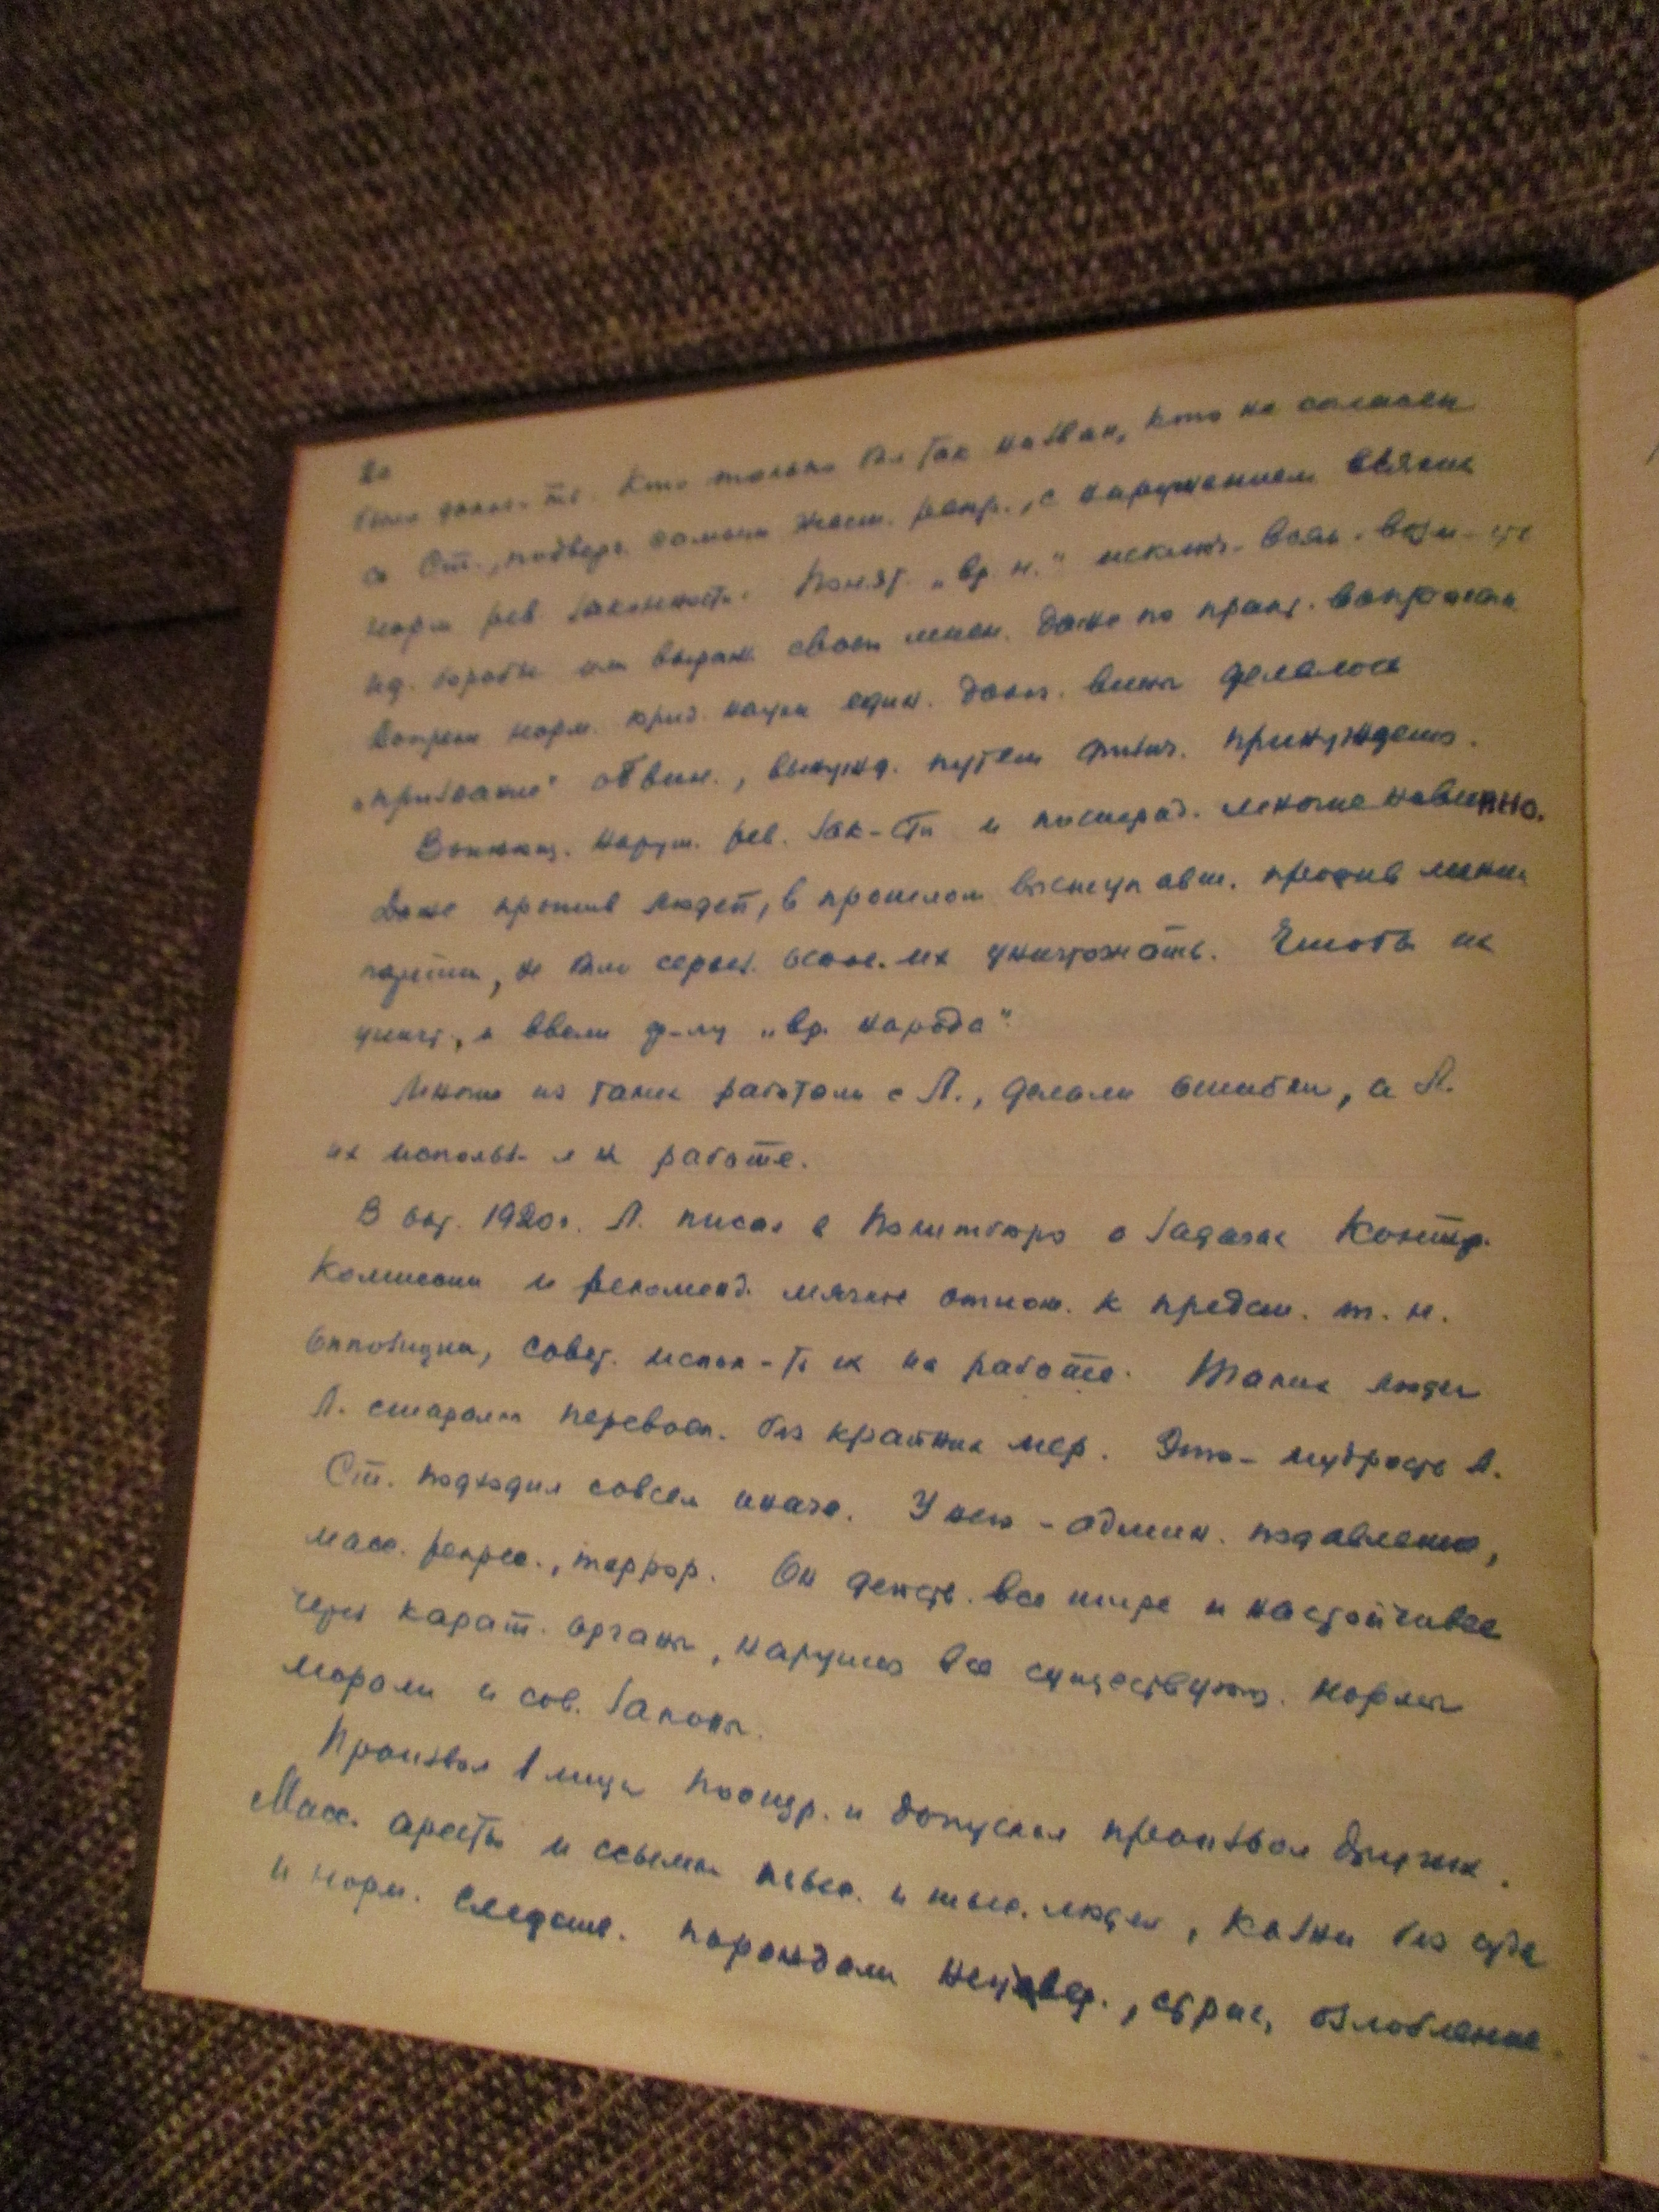 20
было доказ-те. Кто только был так назван, кто не согласен
со Ст., подверг. самым жест. репр., с нарушением всяких
норм рев законности. Понят. „вр. н." исключ. всяк. возм-сть
ид. борьбы или выраж. своего мнен. даже по практ. вопросам
Вопреки норм. юрид. науки един. доказ. вины делалось
„признание" обвин., вынужд. путем физич. принуждения.
Вопиющ. наруш. рев. Зак-сти и пострад. многие невинно.
Даже против людей, в прошлом выступавш. против линии
партии, не было серьез. основ. их уничтожать. Чтобы их
уничт., и ввели ф-лу „вр. народа".
Многие из таких работали с Л., делали ошибки, а Л.
их использ-л на работе.
В окт. 1920г. Л. писал в Политбюро о Задачах Контр.
Комиссии и рекоменд. мягкое отнош. к предст. т. н.
Оппозиции, совет. испол-ть их на работе. Таких людей
Л. старался перевосп. без крайних мер. Это - мудрость Л.
Ст. подходил совсем иначе. У него - админ. подавление,
масс. репресс., террор. Он действ. все шире и настойчивее
через карат. органы, нарушая все существующ. нормы
морали и сов. Законы.
Произвол 1 лица поощр. и допускал произвол других.
Масс. аресты и ссылки тыс. людей, Казни без суда
и норм. следств. порождали неувер., страх, озлобление